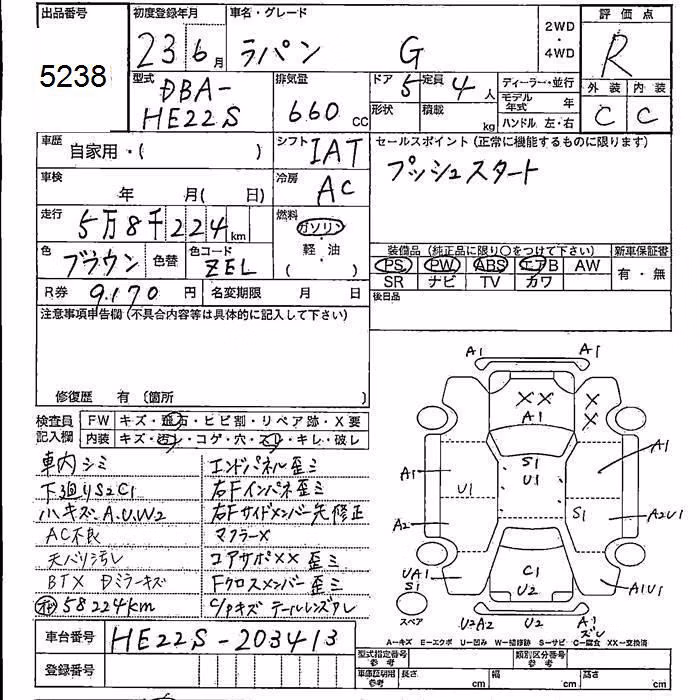 出品番号
5238
初度登録年月
23 6月
車名・グレード
ラパン G
2WD
・
4WD
評価点
R
外装 内装
C C
型式
DBA-
HE22S
排気量
660 CC
ドア 5
定員 4人
形状
積載 kg
ディーラー・並行
モデル年式 年
ハンドル 左・右
車歴
自家用・( )
シフト
IAT
セールスポイント (正常に機能するものに限ります)
プッシュスタート
車検
年 月( 日)
冷房
AC
走行
5万8千224km
燃料
ガソリン
軽・油
( )
色
ブラウン
色替
色コード
ZEL
装備品 (純正品に限り○をつけて下さい)
新車保証書
PS PW ABS エアB AW
SR ナビ TV カワ
有・無
R券 9.170 円
名変期限 月 日
後日品
注意事項申告欄 (不具合内容等は具体的に記入して下さい)
修復歴 有 〔箇所 〕
検査員
記入欄
FW キズ・飛石・ヒビ割・リペア跡・X要
内装 キズ・汚レ・コゲ・穴・スレ・キレ・破レ
車内シミ
下廻りS2C1
ハキズA.U.W2
AC不良
天バリ汚レ
BTX Dミラーキズ
58224km
エンドパネル歪ミ
右Fインパネ歪ミ
右Fサイドメンバー先修正
マフラーX
コアサポXX歪ミ
Fクロスメンバー歪ミ
C/Pキズ テールレンズワレ
A1 A1
X X
X
X
A1
A1
A1
S1
U1
U1
S1
A2
A2U1
UA1
S1
C1
U2
A1U1
スペア
U2A2 U2 A1
ズレ
A-キズ E-エクボ U-凹み W-補修跡 S-サビ C-腐食 XX-交換済
車台番号 HE22S-203413
登録番号
型式指定番号
参考
類別区分番号
参考
車庫証明用
参考
長さ cm
幅 cm
高さ cm